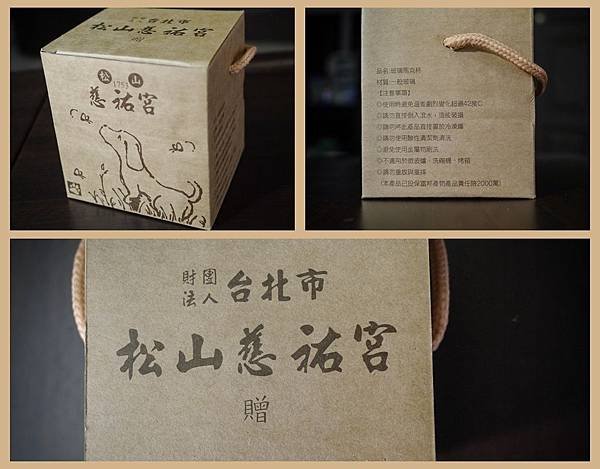 財團法人台北市
松山慈祐宮 贈
松 山
1753
慈祐宮
品名:玻璃馬克杯
材質:一般玻璃
【注意事項】
◎使用時避免溫差劇烈變化超過42度C
◎請勿直接倒入沸水,須嚴裝禦
◎請勿將此產品直接置於冷凍庫
◎請勿使用酸性清潔劑清洗
◎避免使用金屬物刷洗
◎不適用於微波爐、洗碗機、烤箱
◎請勿重放與重摔
(本產品已投保富邦產物產品責任險2000萬)
財團
法人 台北市
松山慈祐宮
贈